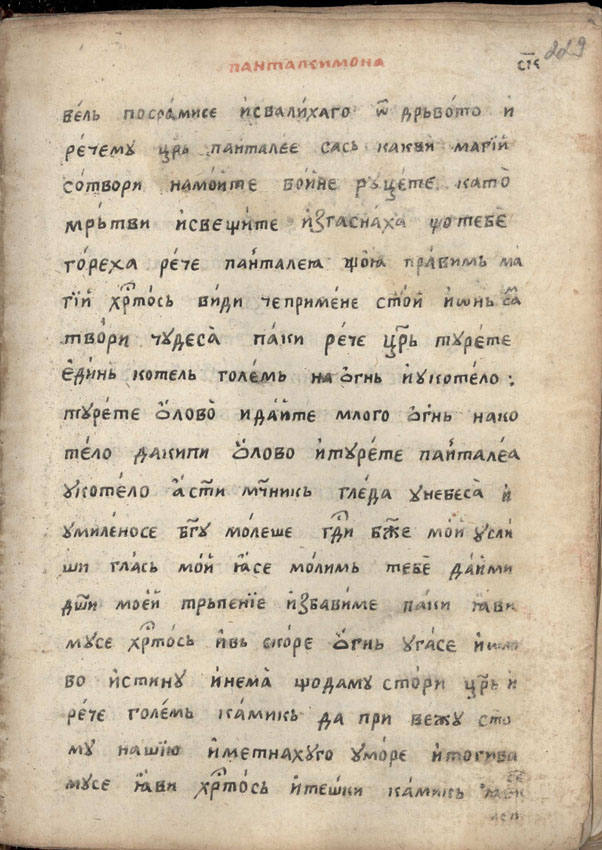 панталеимона
сл҃ѕ 229
ве́ль посра́мисе и҆свали́хаго ѿ дрьво́то и҆
ре́чему цр҃ь панталее сась какви магїй
со́твори намо́йте во́ине руце́те като̀
мрь́тви и҆свещи́те и҆згасна́ха що тебѐ
го́реха ре́че пан҆тале́ꙗ що́ю пра́вимь ма
гїй хрⷭ҇то́сь ви́ди чепримене сто́й и҆ѡнь
тво́ри чу́деса̀ па́ки ре́че цр҃ь ту́рете
є҆ди́нь коте́ль го́лемь на о҆́гнь и҆уко́тело :
ту́рете о҆́лово̀ и҆ да́йте мло́го о҆́гнь нако
те́ло дакипи о҆́лово и҆ту́рете пан҆тале́а
уко́те́ло а҆́ сти҃ мч҃никь гле́да унебеса̀ и҆
умиле́носе бг҃у мо́леше гдⷭ҇и бж҃е мо́й усли
ши гла́сь мо́й ꙗ҆́се мо́лимь тебѐ да́йми
дш҃и мое́й трьпе́нїе и҆збави́ме паки ꙗ҆ви
мусе хрⷭ҇то́сь и҆вь ско́ре о҆́гнь уга́се и҆
во и҆́стину и҆нема̀ щода́му сто́ри цр҃ь и҆
ре́че го́лемь ка́микь да при ве́жу сто
му на́шїю и҆метнахуго умо́ре и҆тоги́ва
мусе ꙗ҆́ви хрⷭ҇то́сь и҆те́шки ка́микь